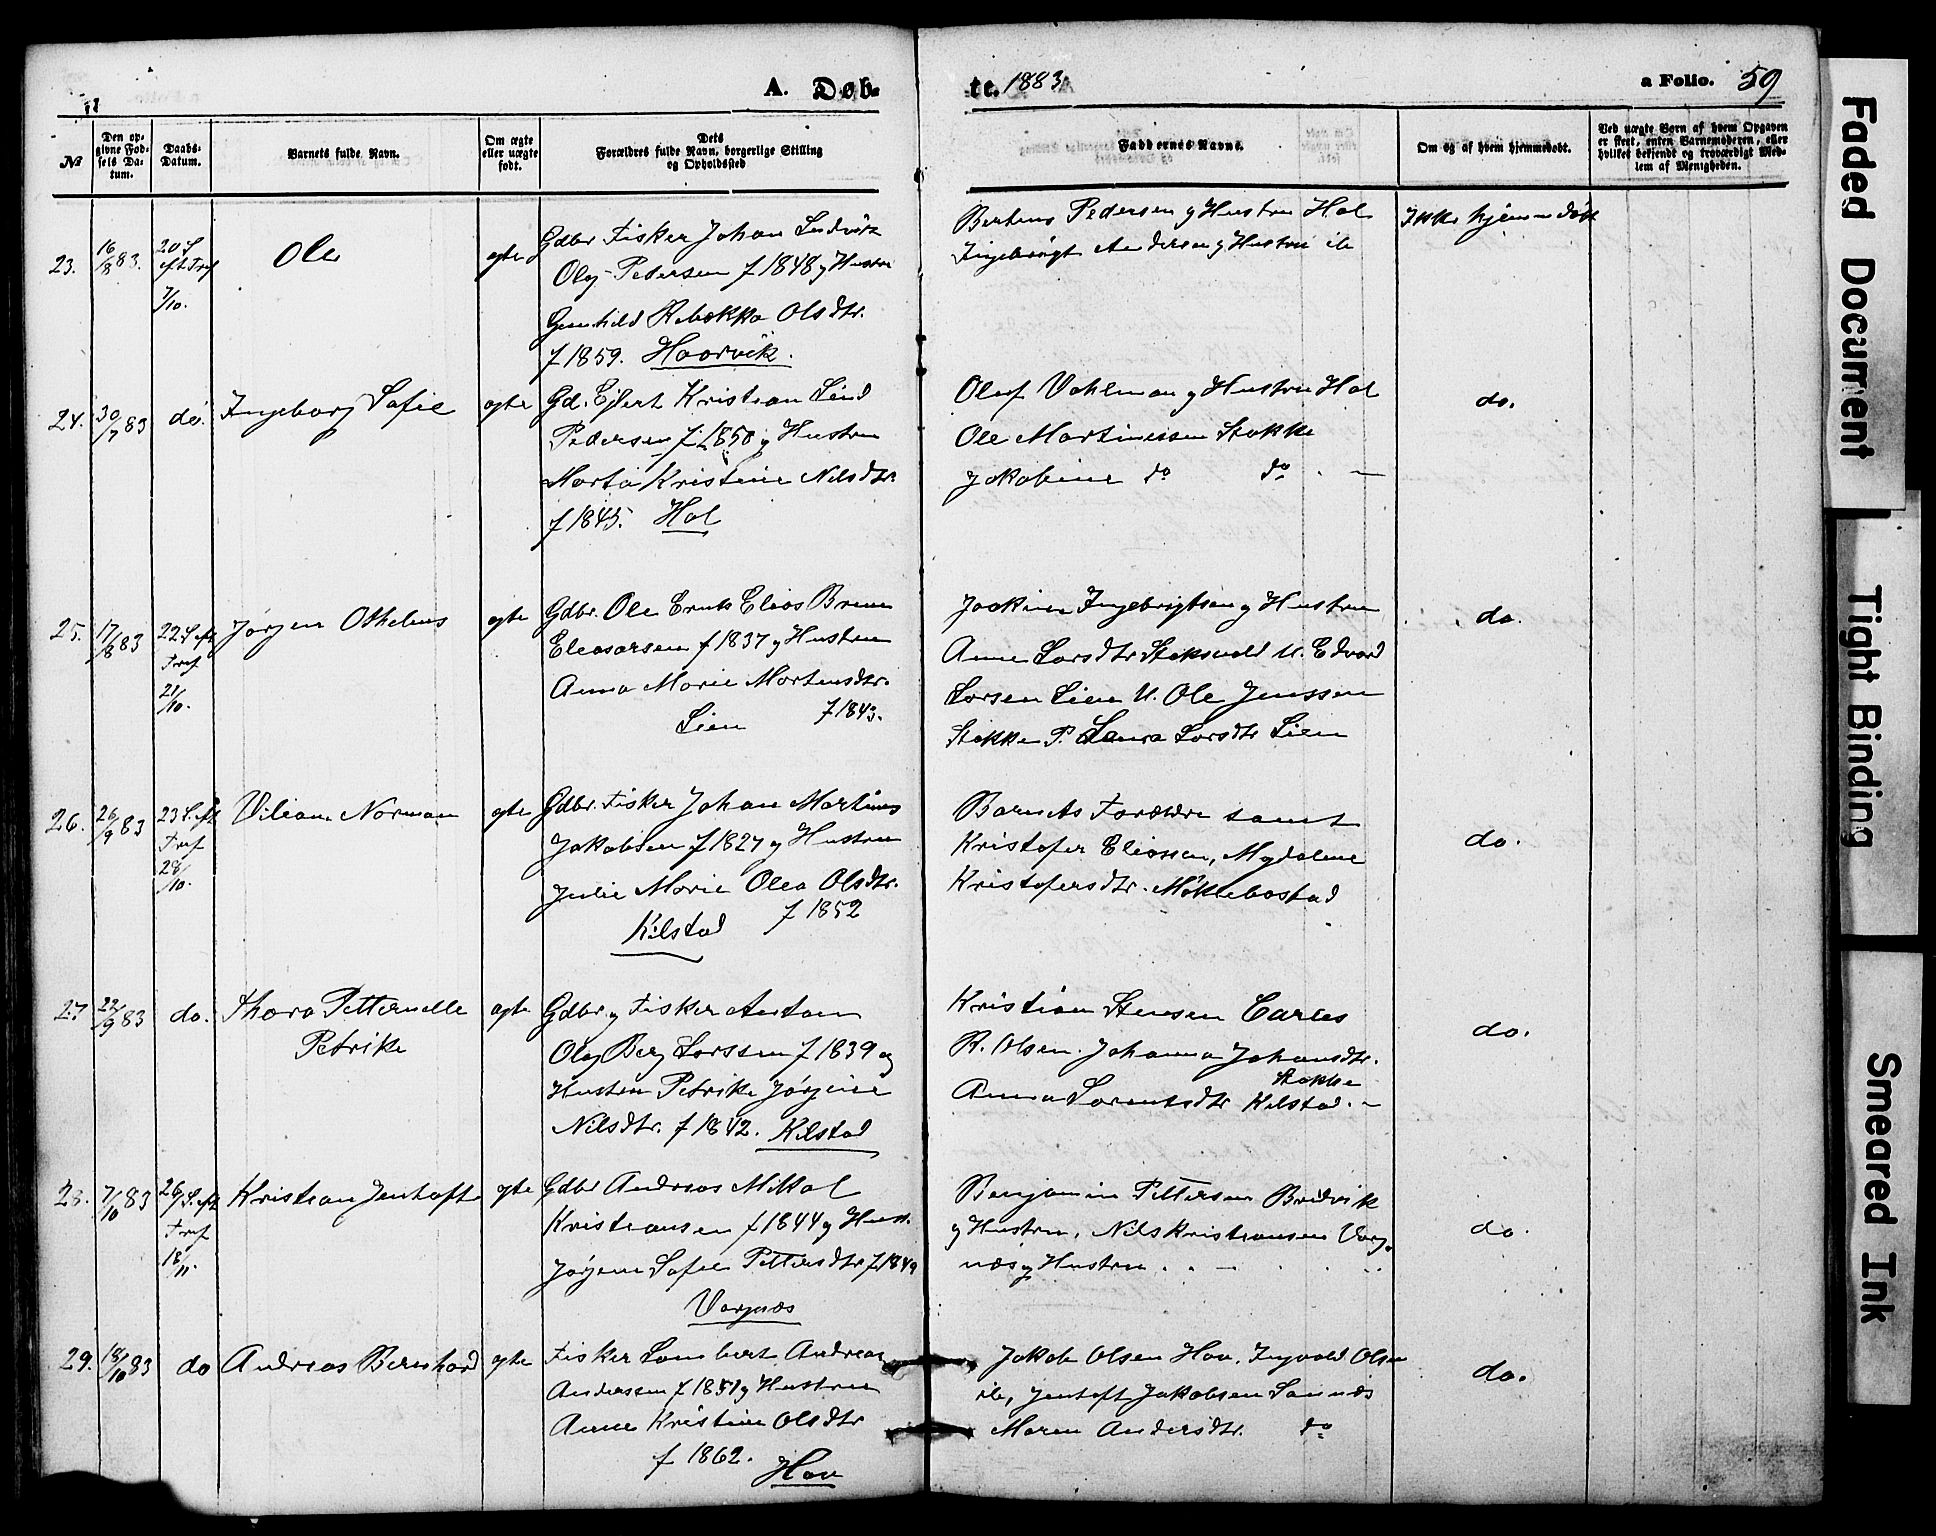 A. Døb-
te. 1883.
a Folio. 59
№
Den op-
givne Fød-
sels Da-
tum.
Daabs-
Datum.
Barnets fulde Navn.
Om ægte
eller uægte
født.
Dets
Forældres fulde Navn, borgerlige Stilling
og Opholdssted
Faddernes Navne.
Om og af hvem hjemmedøbt.
Ved uægte Børn af hvem Opgaven
er skeet, enten Barnemoderen, eller
hvilket bekjendt og troværdigt Med-
lem af Menigheden.
23.
16/8 83.
20 S
eft Tref
7/10.
Ole
ægte
Gdbr. Fisker Johan Ludvik
Olaj Pedersen f 1848 g Hustru
Gunhild Rebekka Olsdtr.
f 1859. Haarvik.
Bertens Pedersen g Hustru Hol
Ingebrigt Andersen g Hustru ib
Ikke hjemmedøbt
24.
30/7 83
do.
Ingeborg Sofie
ægte
Gd. Ejlert Kristian Lind
Pedersen f. 1850 g Hustru
Marta Kristine Nilsdtr.
f 1845. Hol
Oluf Vahlman g Hustru Hol
Ole Martinussen Stokke
Jakobine do do . —
do.
25.
17/8 83
22 S. eft
Tref
21/10.
Jørgen Othelius
ægte
Gdbr. Ole Ernts Elias Bruun
Eleasarsen f 1837 g Hustru
Anna Marie Mortensdtr.
Lien f 1843.
Joakim Ingebrigtsen g Hustru
Anne Larsdtr Stoksvold U. Edvard
Larsen Lien U. Ole Jenssen
Stokke P. Laura Larsdtr Lien
do.
26.
26/9 83
23 S. eft
Tref
28/10.
Viliam Norman
ægte
Gdbr. Fisker Johan Martinus
Jakobsen f 1827 g Hustru
Julie Marie Olea Olsdtr.
Kilstad f 1852
Barnets Forældre samt
Kristofer Eliassen, Magdalene
Kristofersdtr. Møklebostad
do.
27
22/9 83
do.
Thora Petternelle
Petrike
ægte
Gdbr. g Fisker Antoni
Olaj Berg Larssen f 1839 og
Hustru Petrike Jørgine
Nilsdtr. f 1842. Kilstad
Kristian Stensen Carles
R. Olsen. Johanna Johansdtr.
Stokke
Anna Lorentsdtr Kilstad. —
do.
28.
7/10 83
26 S. eft
Tref
18/11.
Kristian Jentoft
ægte
Gdbr Andreas Mikal
Kristiansen f 1844 g Hust.
Jørgine Sofie Pettersdtr f 1849
Vargnæs
Benjamin Pettersen Bredvik
g Hustru, Nils Kristiansen Varg-
næs g Hustru
do.
29.
18/10 83
do
Andreas Bernhard
ægte
Fisker Lambert Andreas
Anderssen f 1851 g Hustru
Anne Kristine Olsdtr
f 1862. Hov
Jakob Olsen Hov, Ingvald Olsen
ib, Jentoft Jakobsen Sannæs
Maren Andersdtr. do
do.
Faded Document
Tight Binding
Smeared Ink